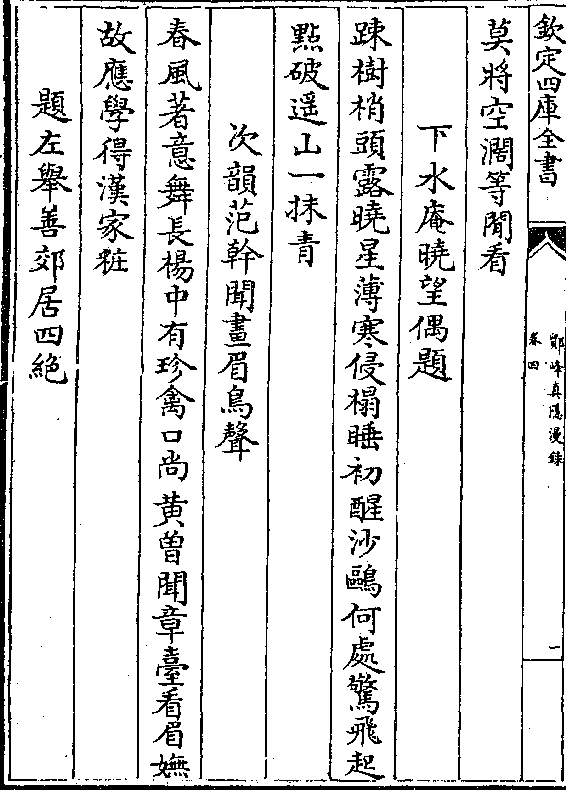 欽定四庫全書
鄮峰真隱漫錄
卷四
一
莫將空濶等閒看
下水庵曉望偶題
踈樹梢頭露曉星薄寒侵榻睡初醒沙鷗何處驚飛起
點破遥山一抹青
次韻范幹聞畫眉鳥聲
春風著意舞長楊中有珍禽口尚黄曽聞章臺看眉嫵
故應學得漢家粧
題左舉善郊居四絶